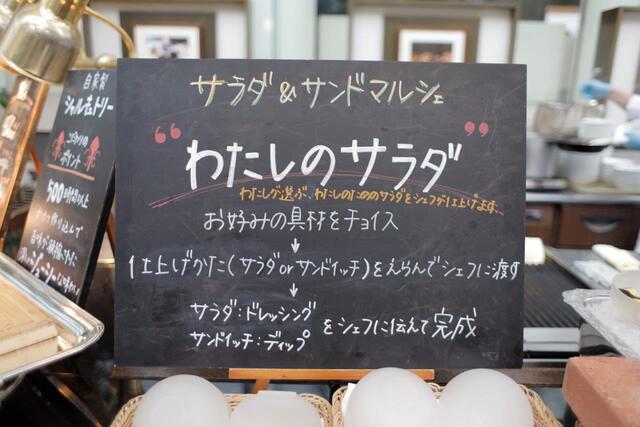 サラダ&サンドマルシェ
“わたしのサラダ”
わたしが選ぶ、わたしのためのサラダをシェフが仕上げます。
お好みの具材をチョイス
↓
仕上げかた(サラダorサンドイッチ)をえらんでシェフに渡す
↓
サラダ:ドレッシング
サンドイッチ:ディップ
をシェフに伝えて完成
自家製
シャルキュトリー
こだわりの
ポイント
500時間以上